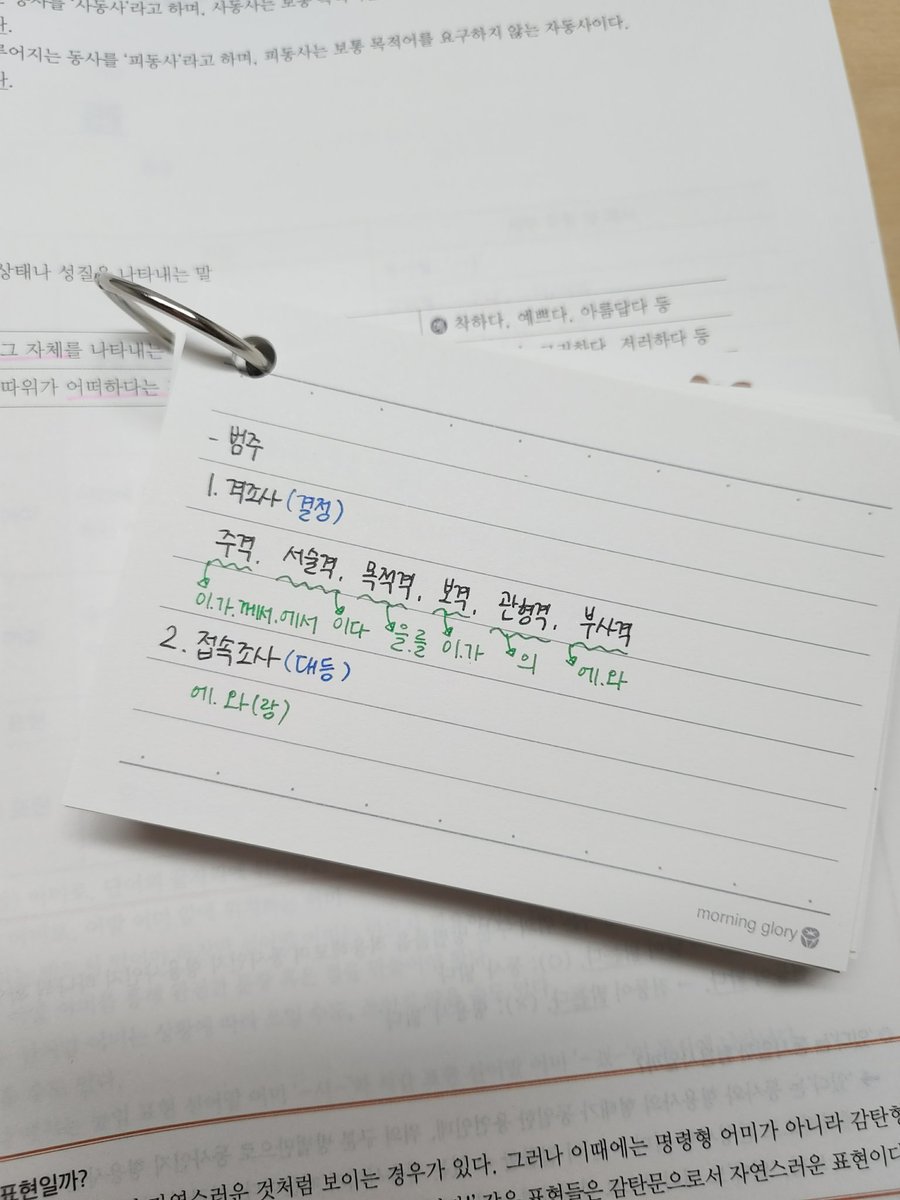 라고 하며, 사동사는 보통
루어지는 동사를 '피동사'라고 하며, 피동사는 보통 목적어를 요구하지 않는 자동사이다.
상태나 성질을 나타내는 말
예 착하다, 예쁘다, 아름답다 등
저러하다 등
그 자체를 나타내는
따위가 어떠하다는
- 범주
1. 격조사 (결정)
주격, 서술격, 목적격, 보격, 관형격, 부사격
이.가.께서.에서 이다 을.를 이.가 의 에.와
2. 접속조사 (대등)
에. 와(랑)
morning glory
표현일까?
자연스러운 것처럼 보이는 경우가 있다. 그러나 이때에는 명령형 어미가 아니라 감탄형
같은 표현들은 감탄문으로서 자연스러운 표현이다